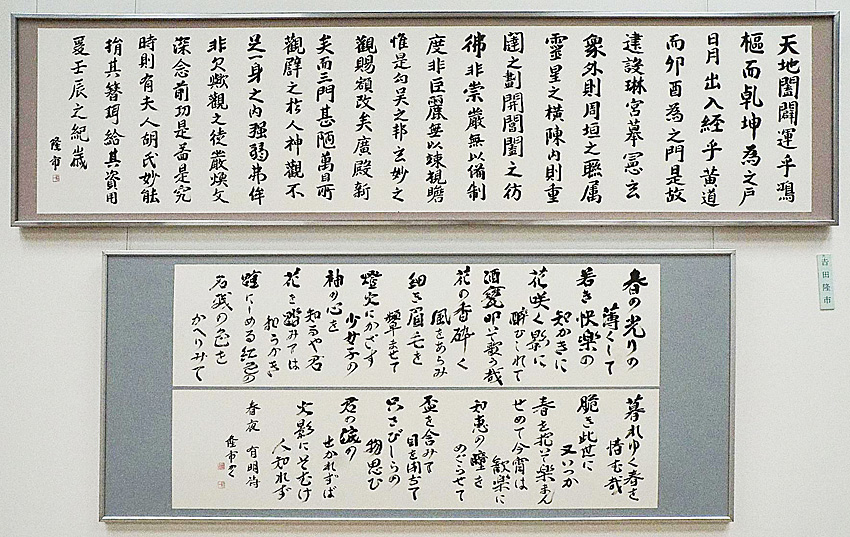 天地闔闢運乎鴻
樞而乾坤為之戶
日月出入経乎黄道
而卯酉為之門是故
建設琳宮摹憲玄
象外則周垣之聯属
靈星之横陳内則重
闥之劃開閶闔之彷
彿非崇嚴無以備制
度非巨麗無以竦視瞻
惟是勾吴之邦玄妙之
觀賜額改矣廣殿新
矣而三門甚陋萬目所
觀辟之於人神觀不
足一身之内强弱弗侔
非欠歟觀之徒嚴煥文
深念前功是啚是究
時則有夫人胡氏妙能
捐其簪珥給其資用
爰壬辰之紀歳
隆市
春の光りの
薄くして
若き快楽の
短かきに
花咲く影に
酔ひしれて
酒甕叩いて歌う哉
花の香砕く
風をあらみ
細き眉毛を
顰ませて
燈火にかざす
少女子の
袖の心を
知るや君
花を踏みては
にしめる紅の
名残の色を
かへりみて
暮れゆく春を
惜む哉
脆き此世に
又いつか
春を抱いて楽まん
せめて今宵は
歓楽に
知恵の瞳を
めぐらせて
盃を含みて
目を閉ぢて
只さびしらの
物思ひ
君の涙の
せかれずば
火影にそむけ
人知れず
春夜 有明
隆市
吉田隆市